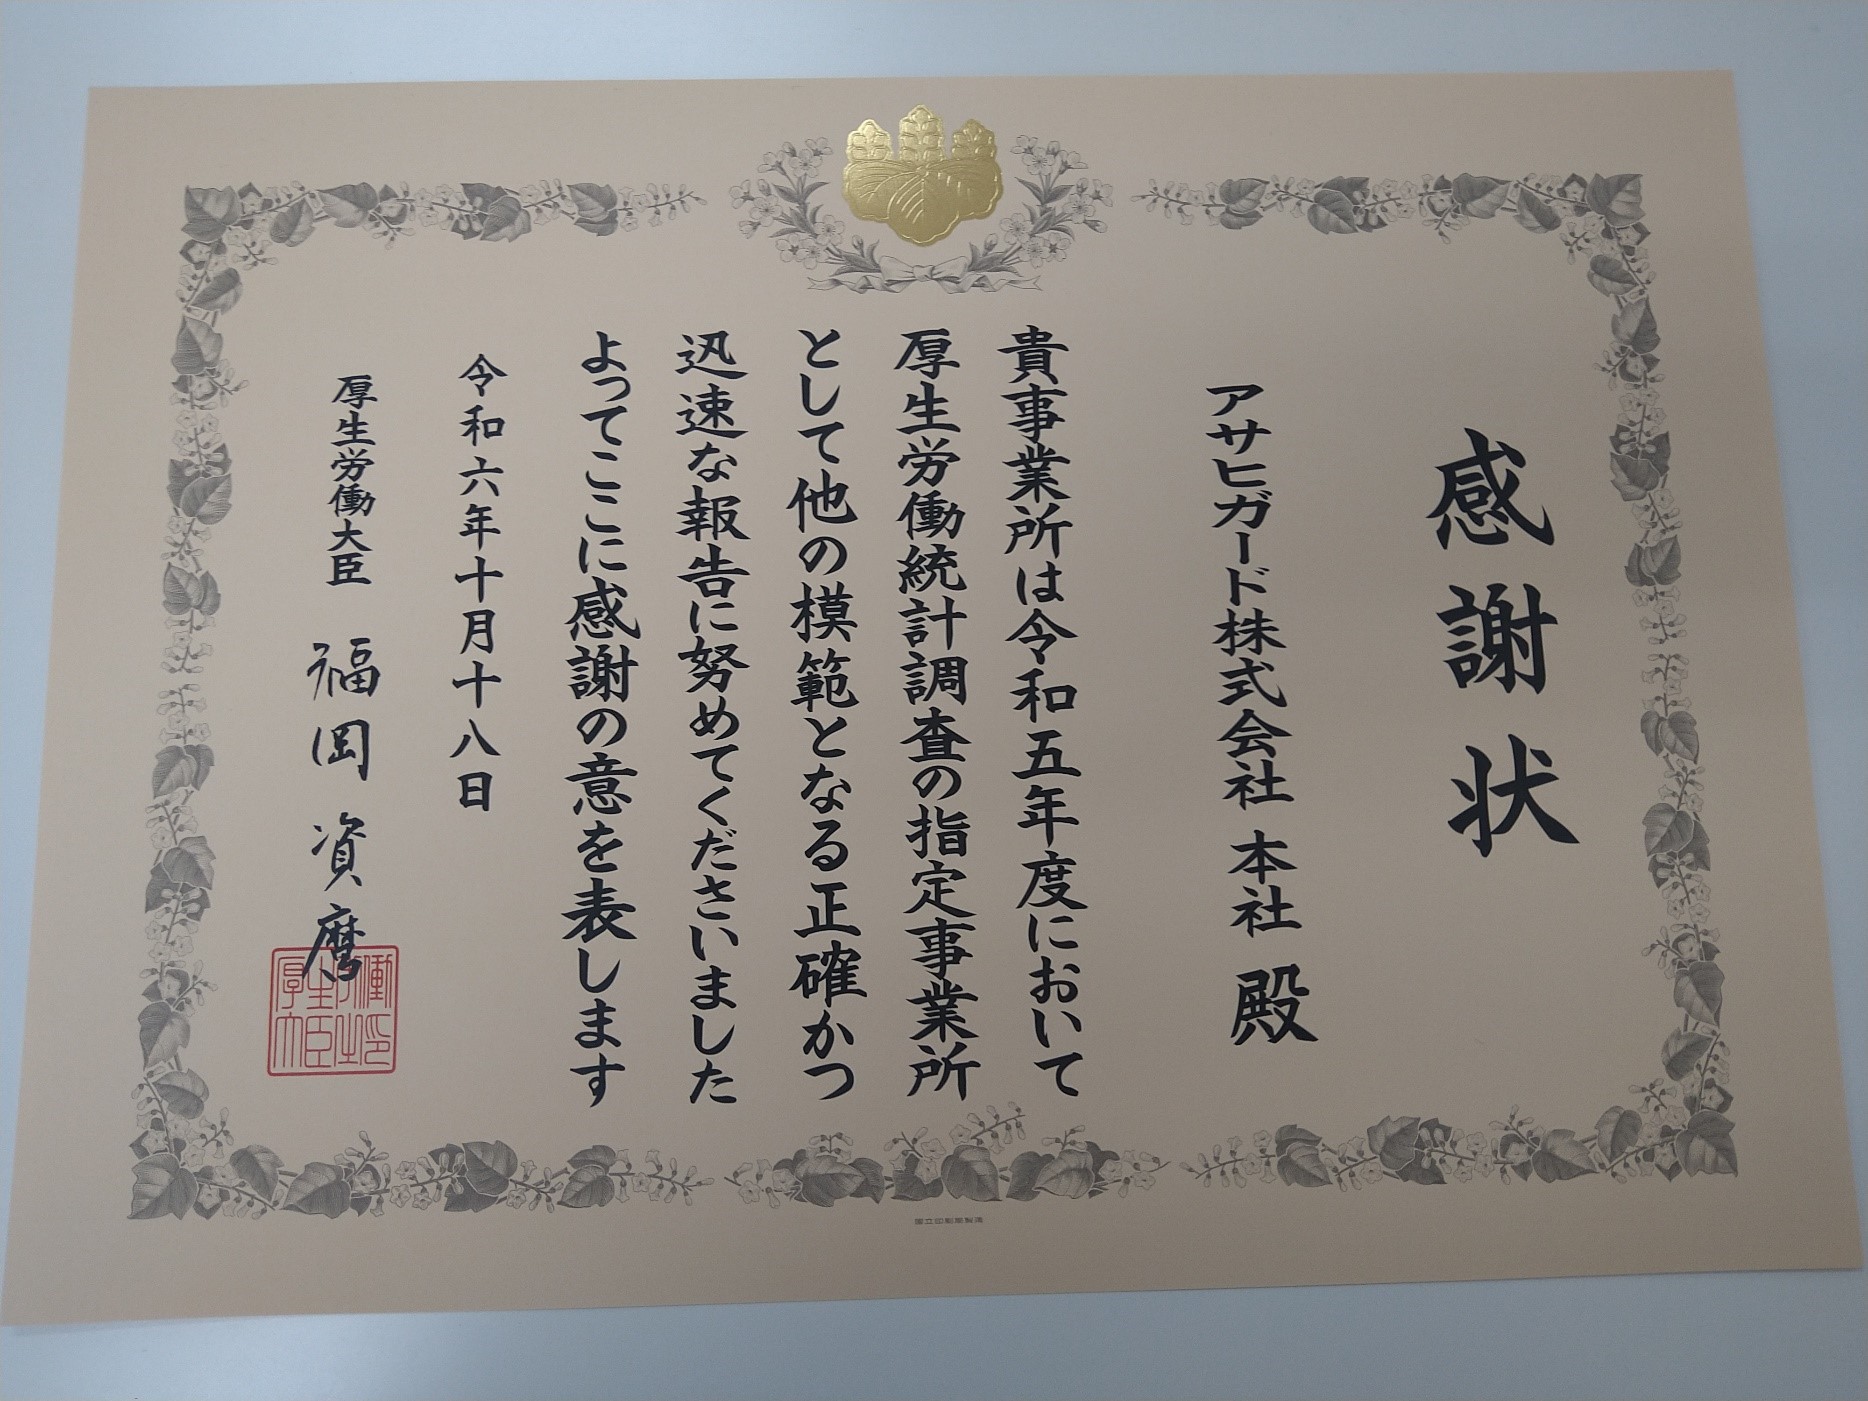 感謝状
アサヒガード株式会社 本社 殿
貴事業所は令和五年度において
厚生労働統計調査の指定事業所
として他の模範となる正確かつ
迅速な報告に努めてくださいました
よってここに感謝の意を表します
令和六年十月十八日
厚生労働大臣 福岡資麿
国立印刷局製造